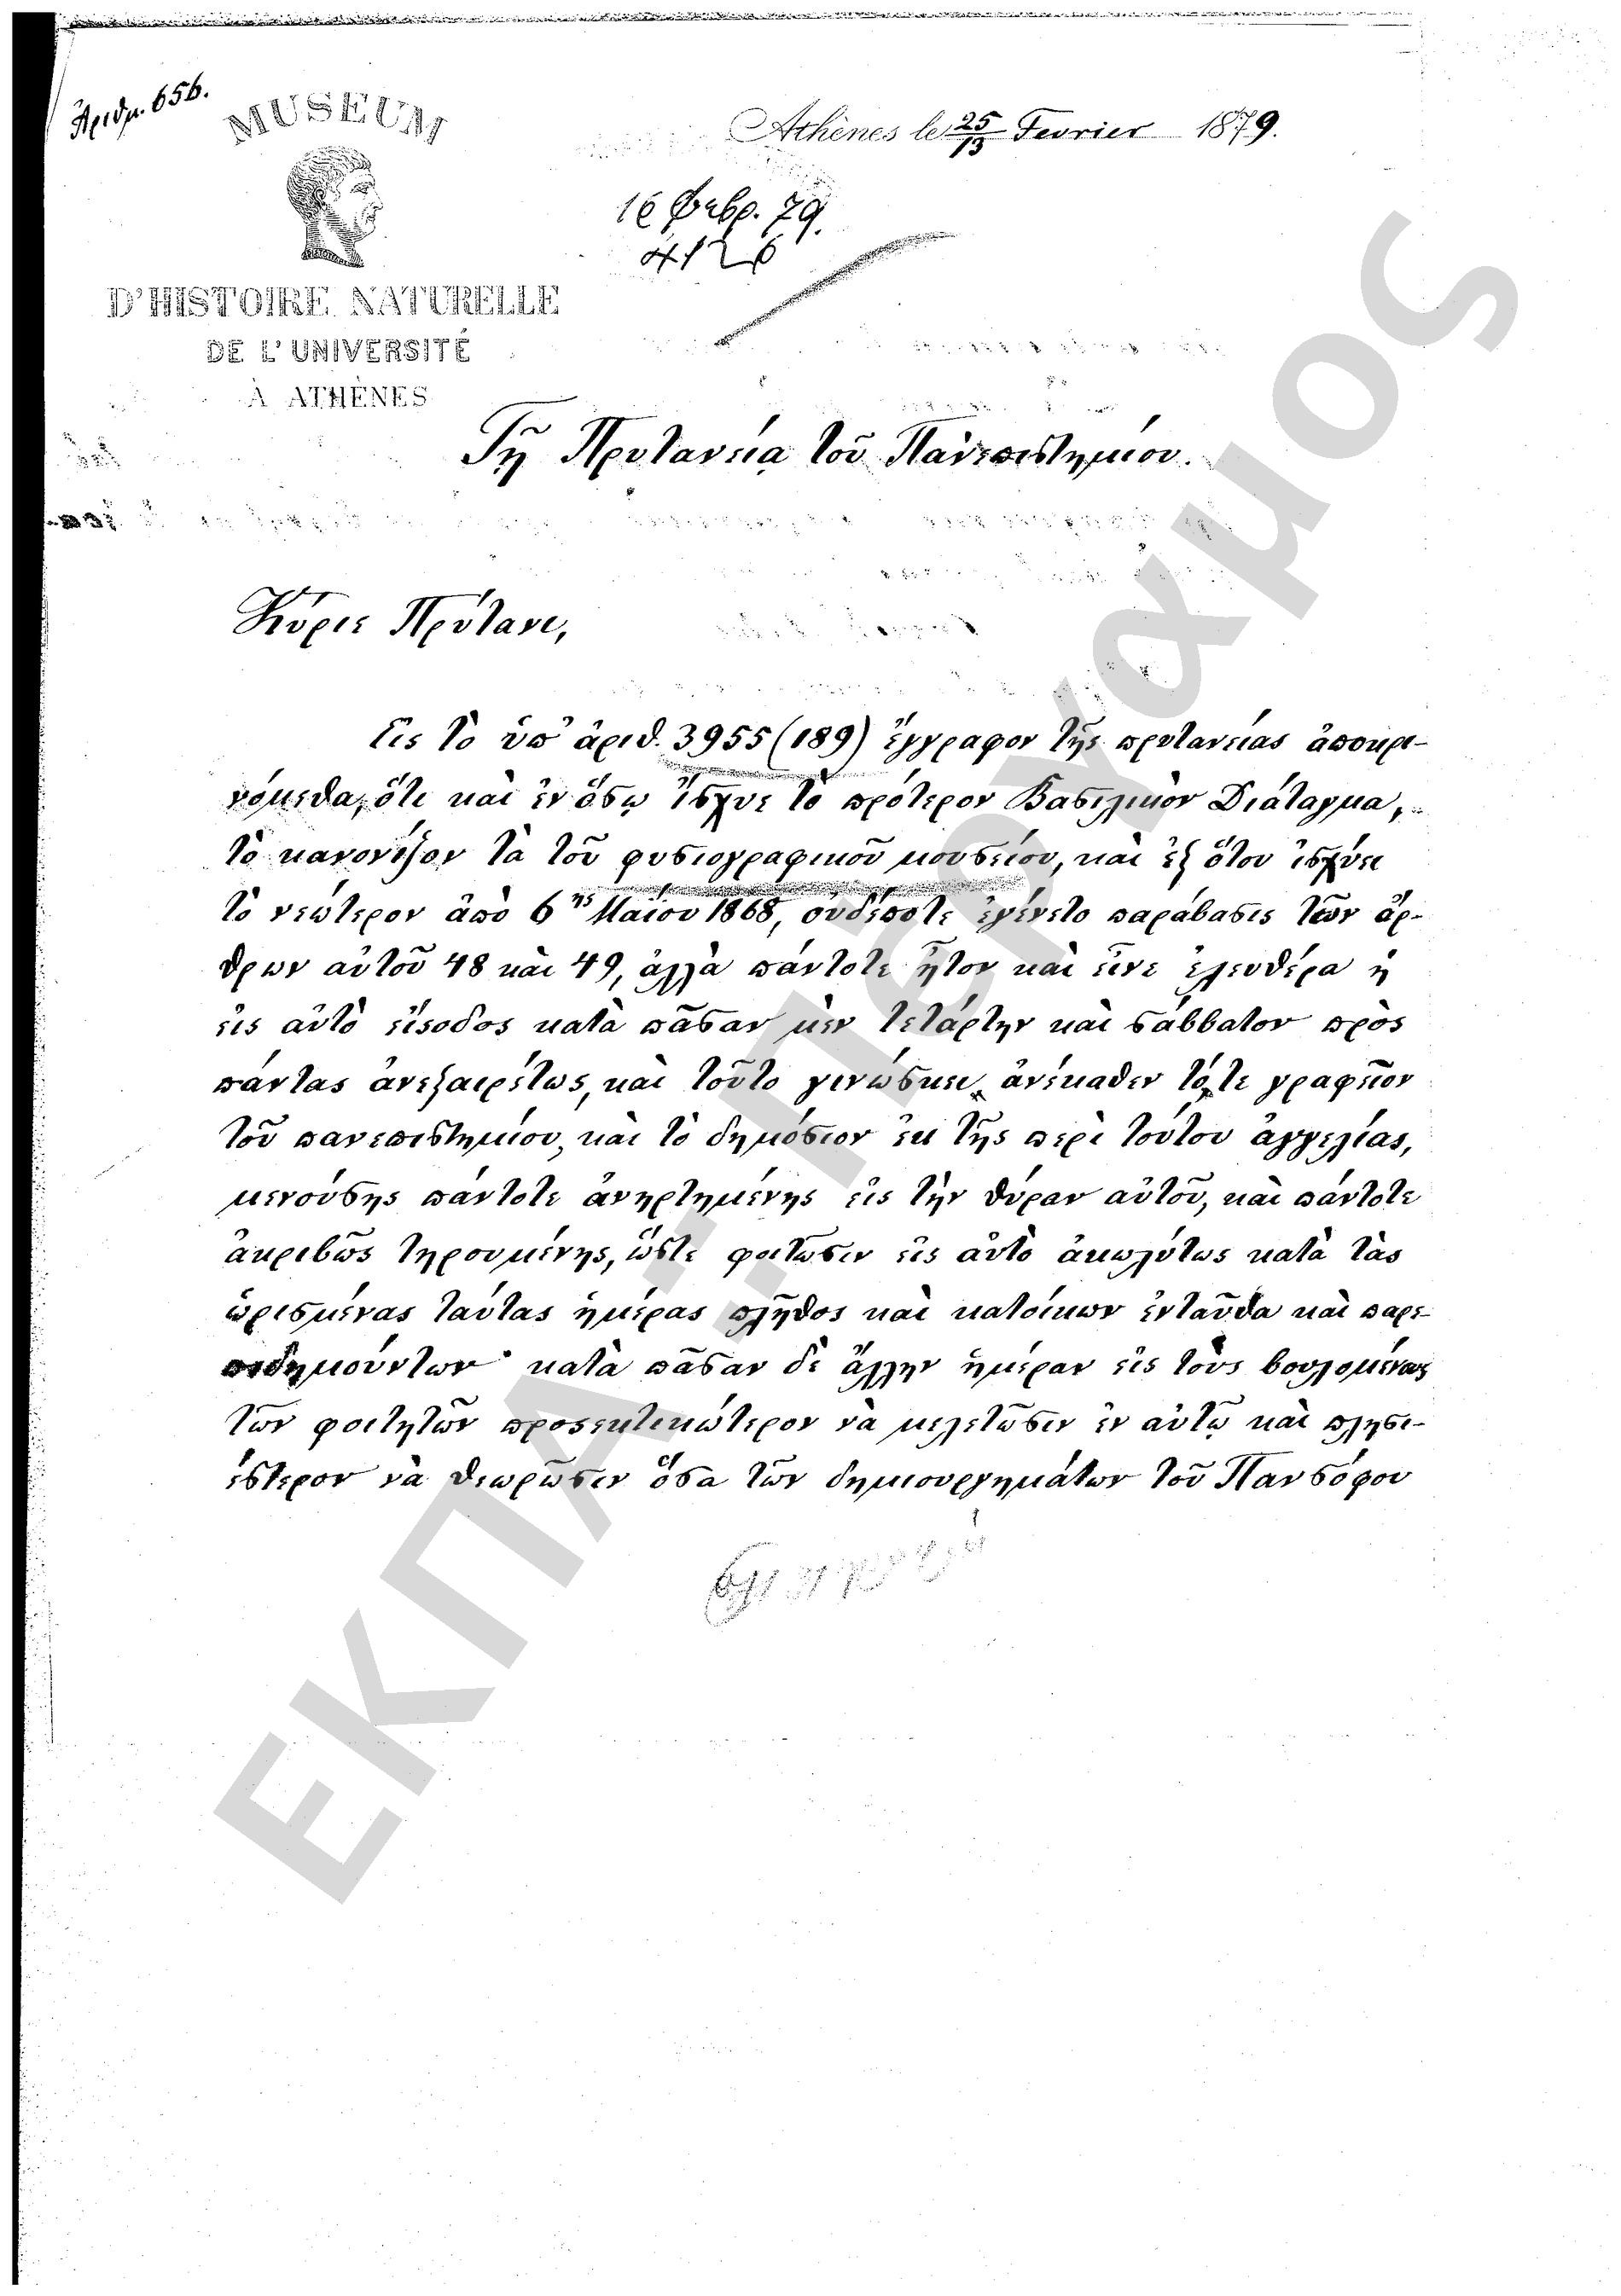 Ἀριθμ. 656.
MUSEUM
D'HISTOIRE NATURELLE
DE L'UNIVERSITÉ
À ATHÈNES
Athènes le 25/13 Fevrier 1879.
16 Φεβρ. 79.
4126
Τῇ Πρυτανείᾳ τοῦ Πανεπιστημίου.
Κύριε Πρύτανι,
Εἰς τὸ ὑπ' ἀριθ. 3955 (189) ἔγγραφον τῆς πρυτανείας ἀποκρι-
νόμεθα, ὅτι καὶ ἐν ὅσῳ ἴσχυε τὸ πρότερον Βασιλικὸν Διάταγμα,
τὸ κανονίζον τὰ τοῦ φυσιογραφικοῦ μουσείου, καὶ ἐξ ὅτου ἰσχύει
τὸ νεώτερον ἀπὸ 6ης Μαΐου 1868, οὐδέποτε ἐγένετο παράβασις τῶν ἄρ-
θρων αὐτοῦ 48 καὶ 49, ἀλλὰ πάντοτε ἦτον καὶ εἶνε ἐλευθέρα ἡ
εἰς αὐτὸ εἴσοδος κατὰ πᾶσαν μὲν τετάρτην καὶ σάββατον πρὸς
πάντας ἀνεξαιρέτως, καὶ τοῦτο γινώσκει ἀνέκαθεν τό,τε γραφεῖον
τοῦ πανεπιστημίου, καὶ τὸ δημόσιον ἐκ τῆς περὶ τούτου ἀγγελίας,
μενούσης πάντοτε ἀνηρτημένης εἰς τὴν θύραν αὐτοῦ, καὶ πάντοτε
ἀκριβῶς τηρουμένης, ὥστε φοιτῶσιν εἰς αὐτὸ ἀκωλύτως κατὰ τὰς
ὡρισμένας ταύτας ἡμέρας πλῆθος καὶ κατοίκων ἐνταῦθα καὶ παρε-
πιδημούντων· κατὰ πᾶσαν δὲ ἄλλην ἡμέραν εἰς τοὺς βουλομένους
τῶν φοιτητῶν προσεκτικώτερον νὰ μελετῶσιν ἐν αὐτῷ καὶ πλησι-
έστερον νὰ θεωρῶσιν ὅσα τῶν δημιουργημάτων τοῦ Πανσόφου
ΕΚΠΑ...Πέργαμος